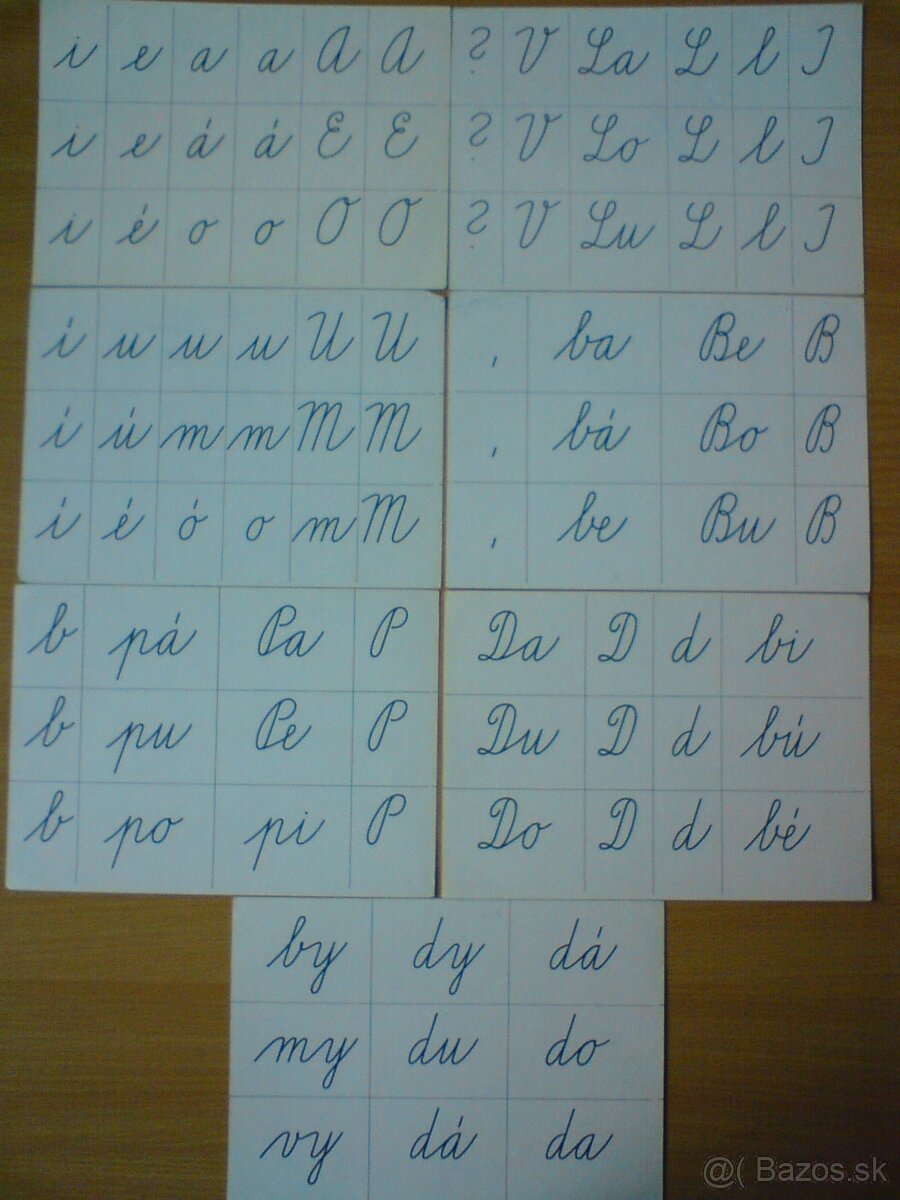 i e a a A A
i e á á E E
i é o o O O
? V La L l I
? V Lo L l I
? V Lu L l I
í u u u U U
í ú m m M M
í é ó o m M
, ba Be B
, bá Bo B
, be Bu B
b pá Pa P
b pu Pe P
b po pi P
Da D d bi
Du D d bú
Do D d bé
by dy dá
my du do
vy dá da
@( Bazos.sk